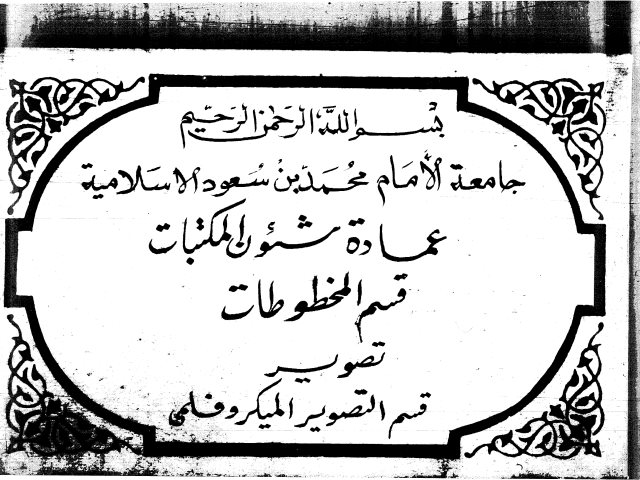 بسم الله الرحمن الرحيم
جامعة الأمام محمد بن سعود الاسلامية
عمادة شئون المكتبات
قسم المخطوطات
تصوير
قسم التصوير الميكروفلمي